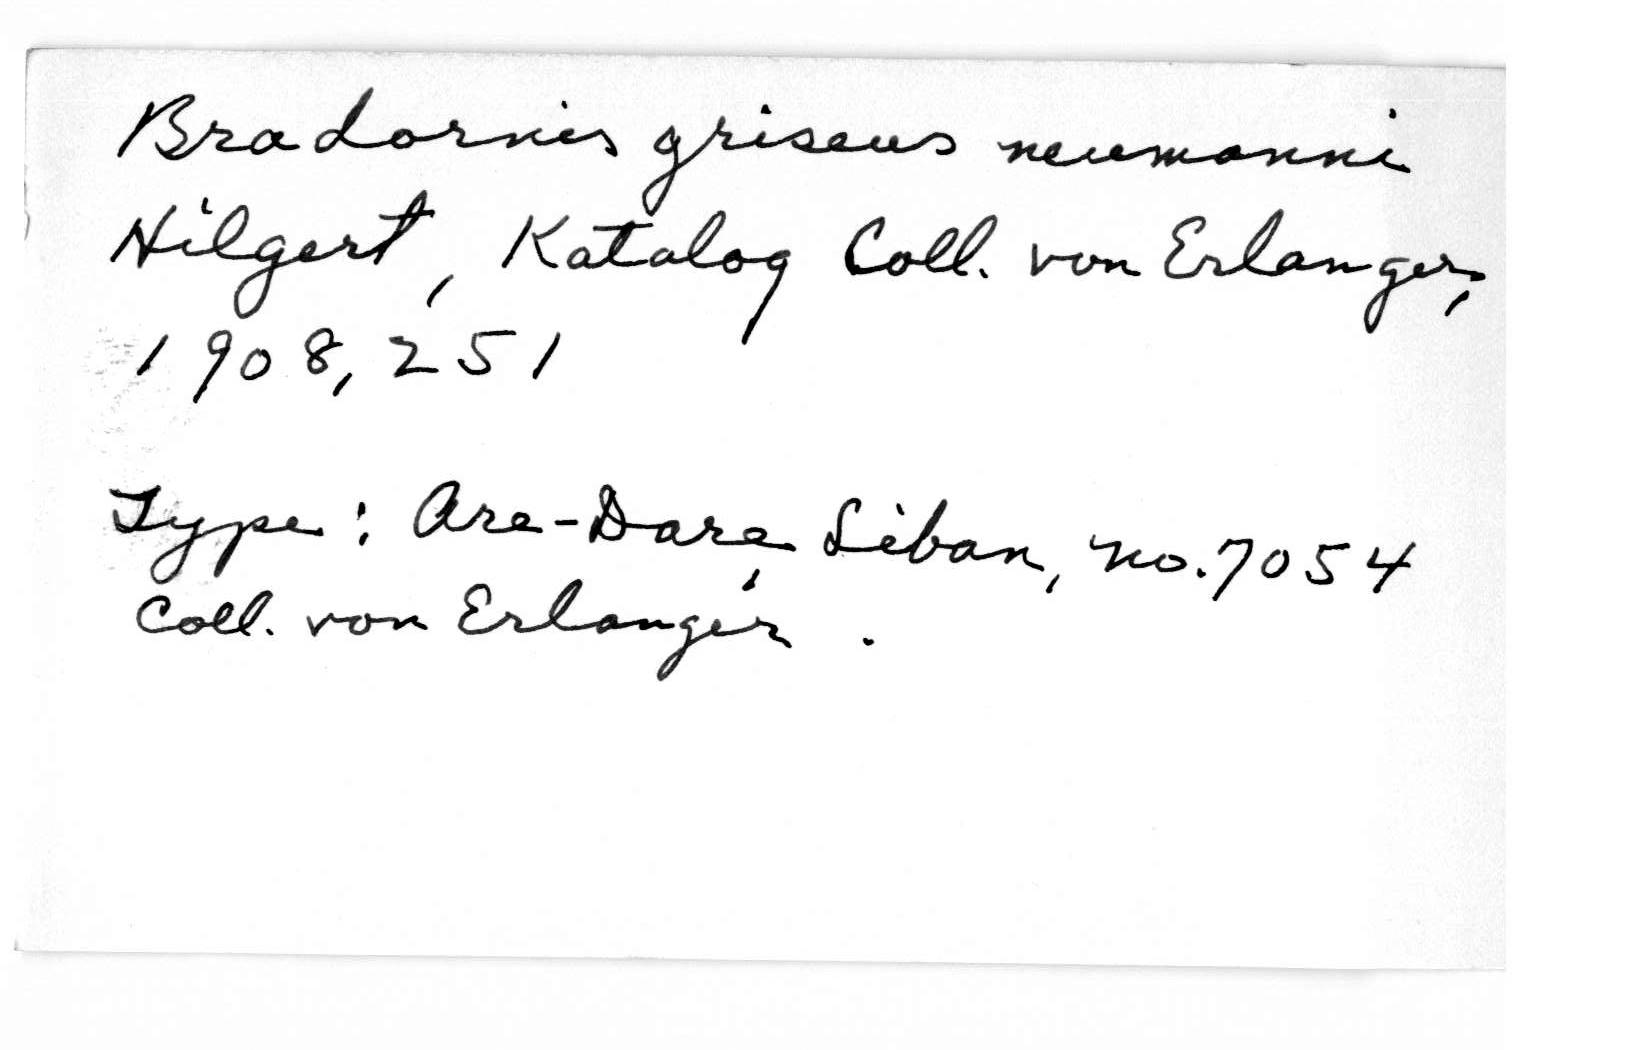 Bradornis griseus neumanni
Hilgert, Katalog Coll. von Erlanger,
1908, 251
Type: Are-Dare, Liban, no. 7054
Coll. von Erlanger.